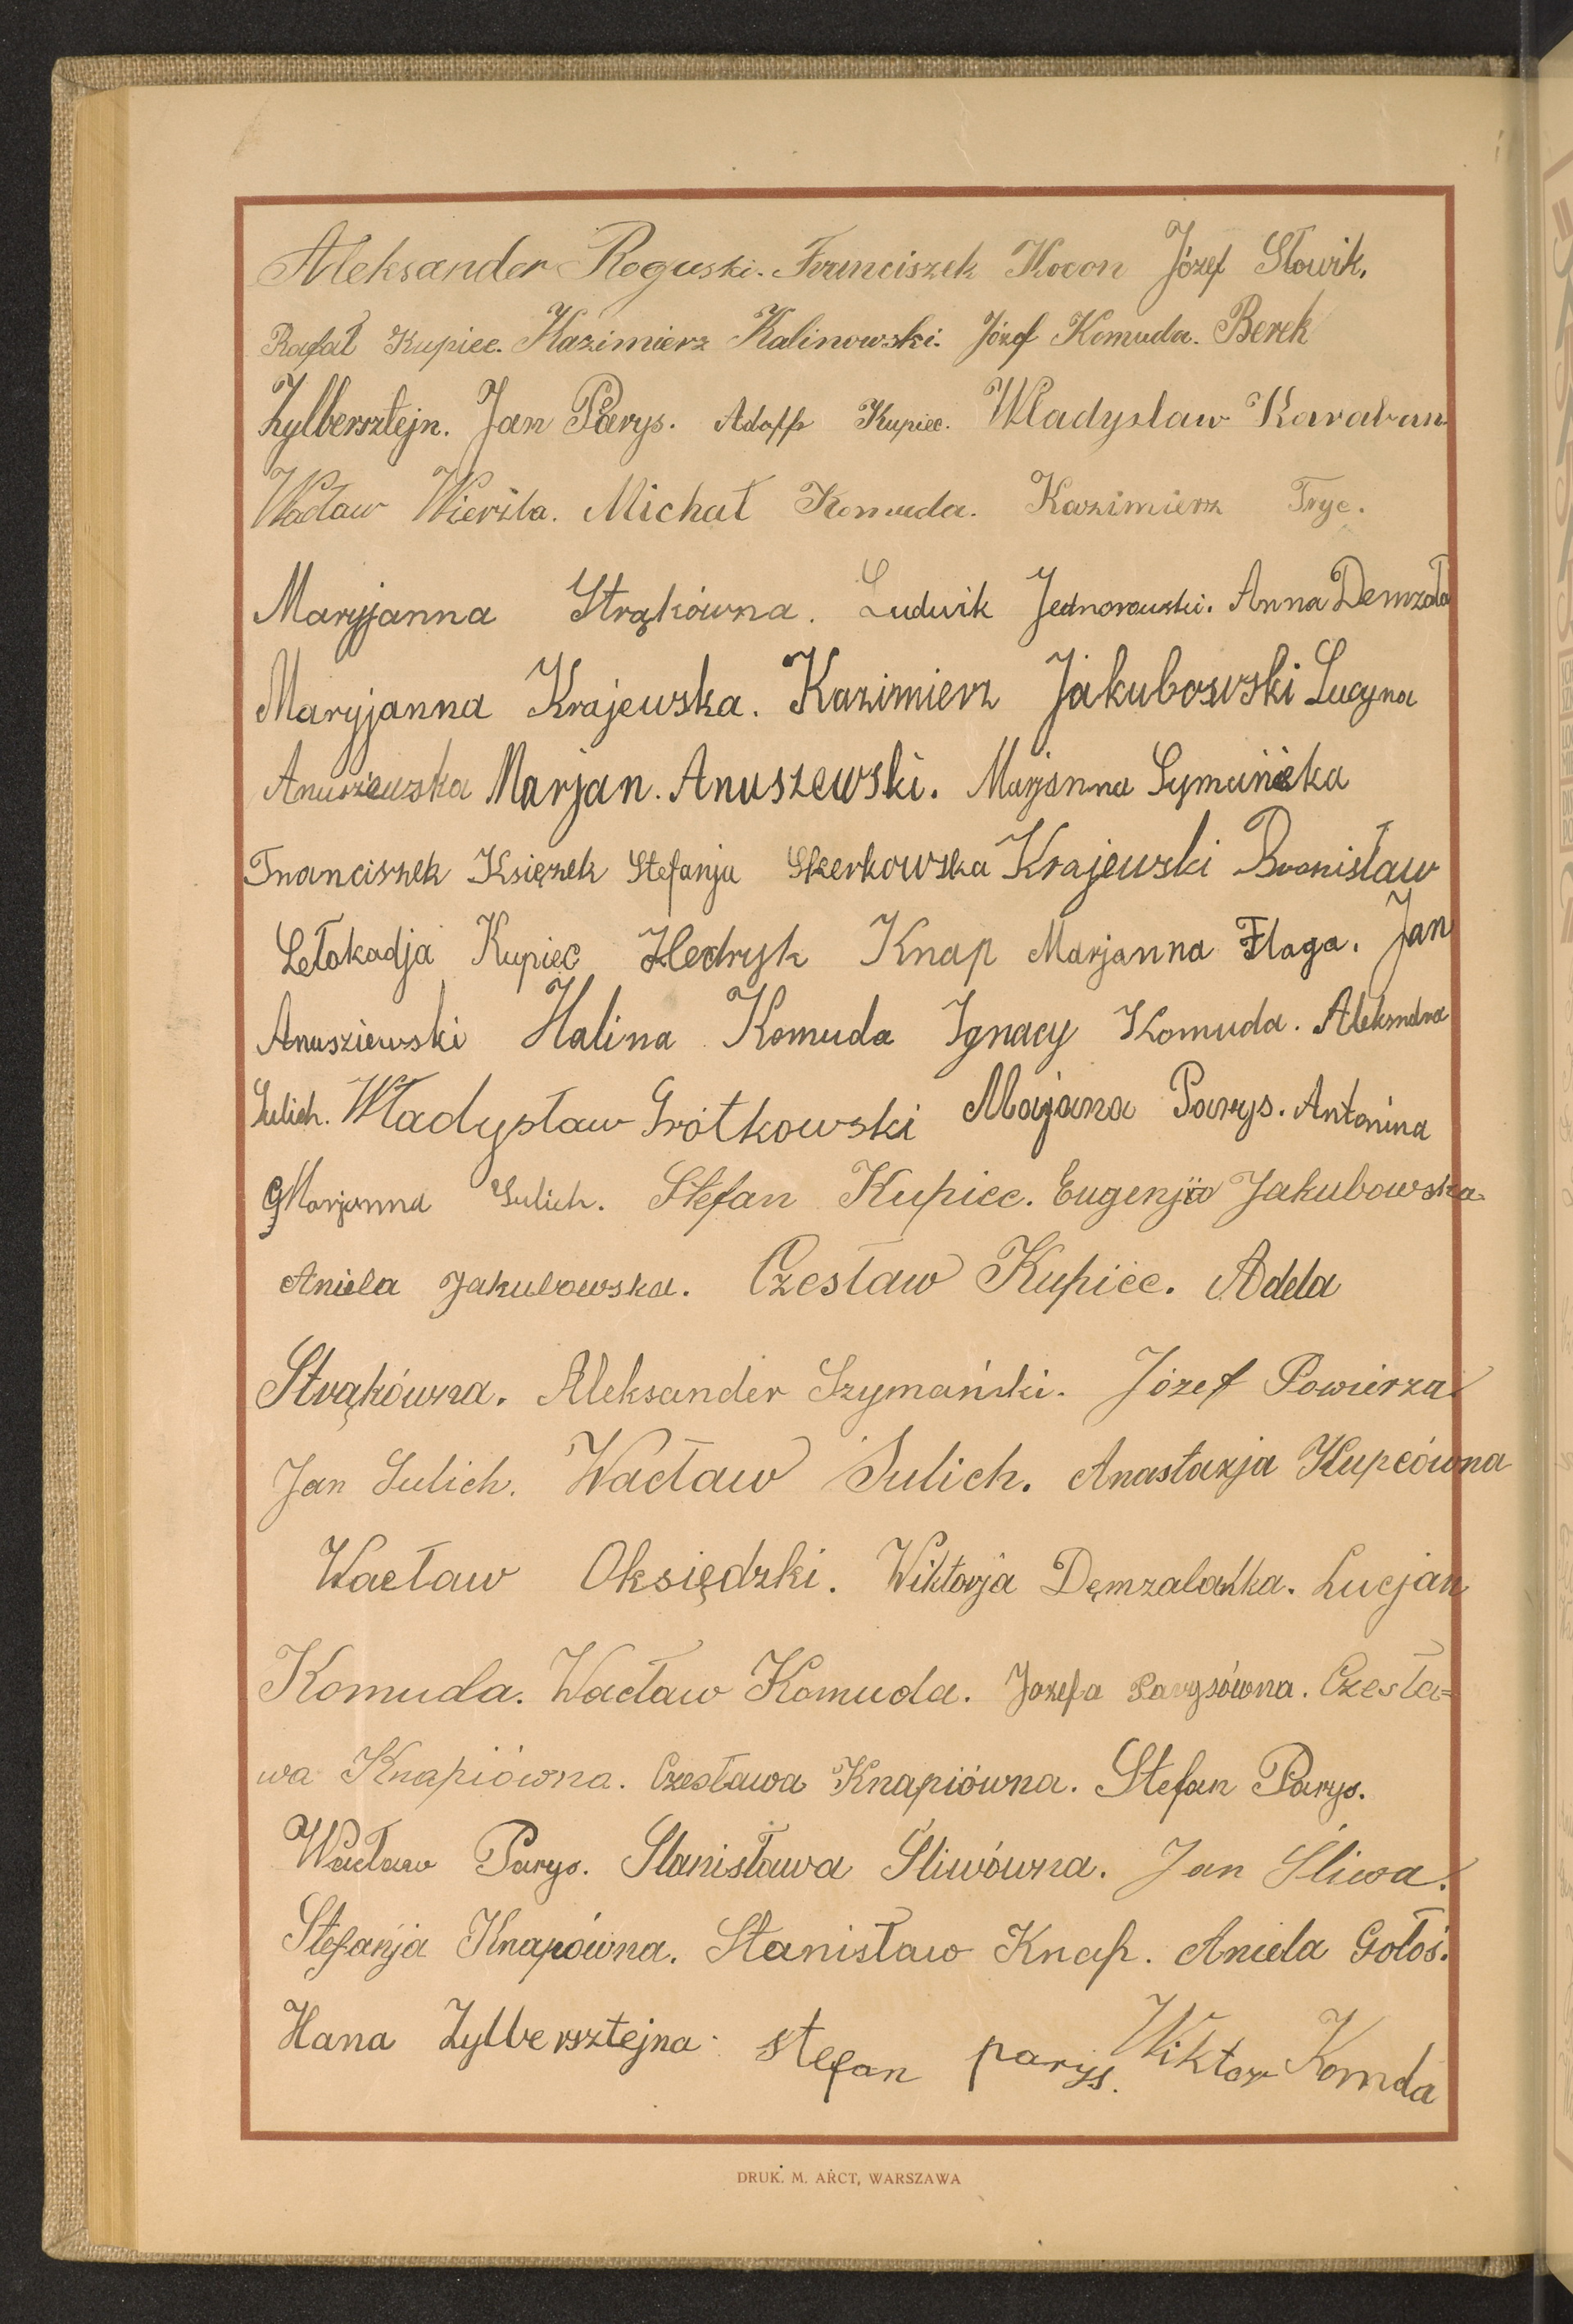 Aleksander Roguski. Franciszek Kocon Józef Słowik.
Rafał Kupiec. Kazimierz Kalinowski. Józef Komuda. Berek
Zylbersztejn. Jan Parys. Adolf Kupiec. Władysław Karaban
Wacław Wierzba. Michał Komuda. Kazimierz Tryc.
Maryjanna Strąkówna. Ludwik Jednorowski. Anna Demzała
Maryjanna Krajewska. Kazimierz Jakubowski Lucyna
Anuszewska Marjan. Anuszewski. Marjanna Symańska
Franciszek Księzek Stefanja Skerkowska Krajewski Bronisław
Lełokadja Kupiec Hedryk Knap Marjanna Flaga. Jan
Anusziewski Halina Komuda Ignacy Komuda. Aleksndra
Sulich. Władysław Grótkowski Majana Parys. Antonina
Marjanna Sulich. Stefan Kupiec. Eugenja Jakubowska
Aniela Jakubowska. Czesław Kupiec. Adela
Strąkówna. Aleksander Szymański. Józef Powierza
Jan Sulich. Wacław Sulich. Anastazja Kupcówna
Wacław Oksiędzki. Wiktorja Dęmzalałka. Lucjan
Komuda. Wacław Komuda. Jozefa Parysówna. Czesła=
wa Knapiówna. Czesława Knapiówna. Stefan Parys.
Wacław Parys. Stanisława Śliwówna. Jan Śliwa.
Stefanja Knapówna. Stanisław Knap. Aniela Gołoś.
Hana Zylbersztejna. stefan parys. Wiktor Komda
DRUK. M. ARCT, WARSZAWA